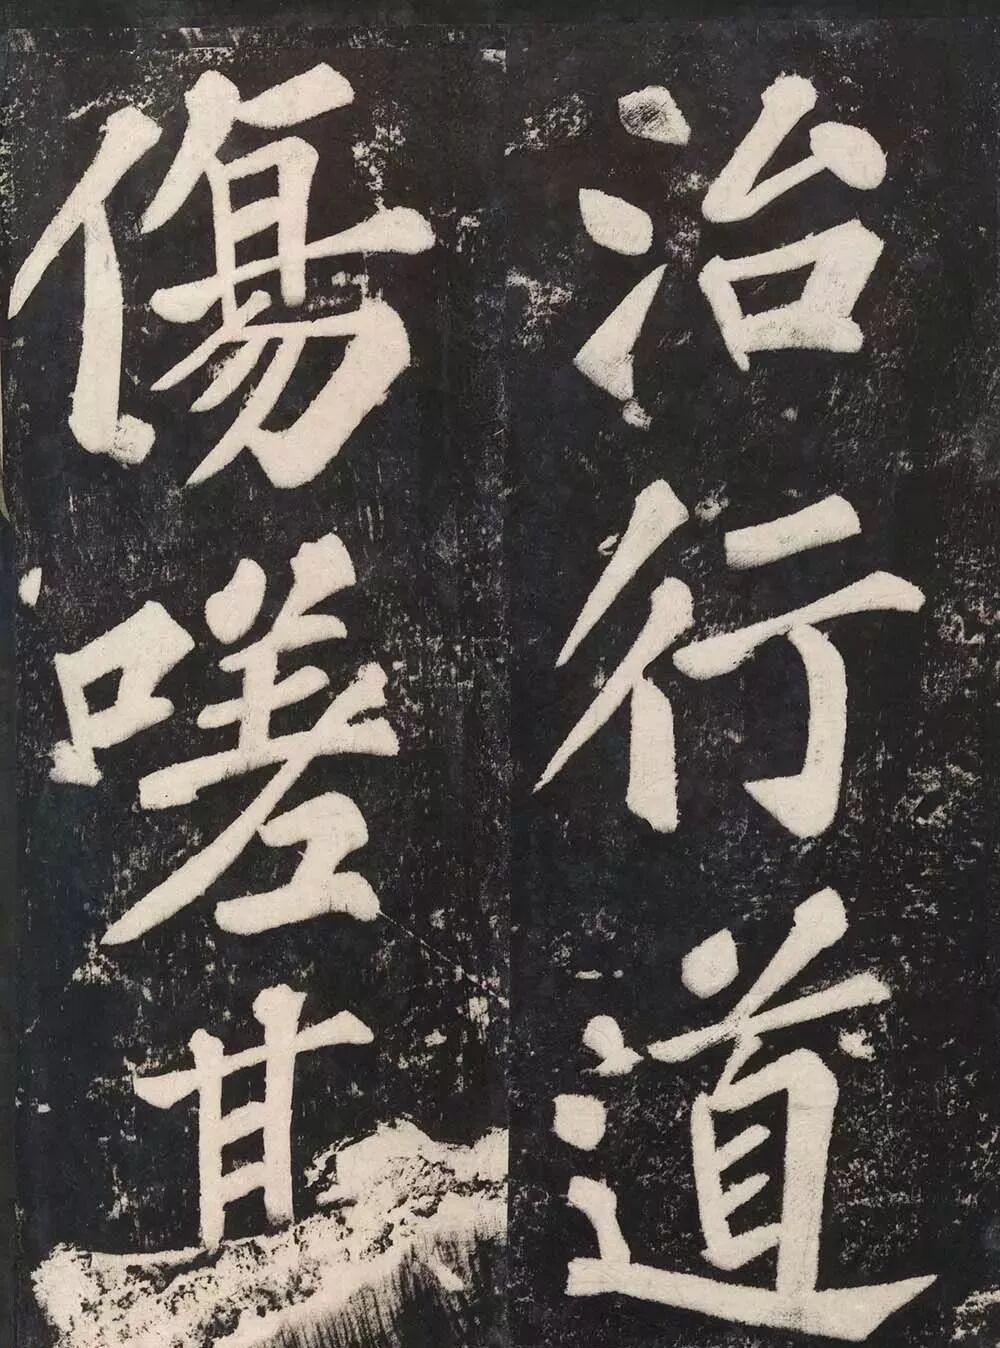 治行道
傷嗟甚